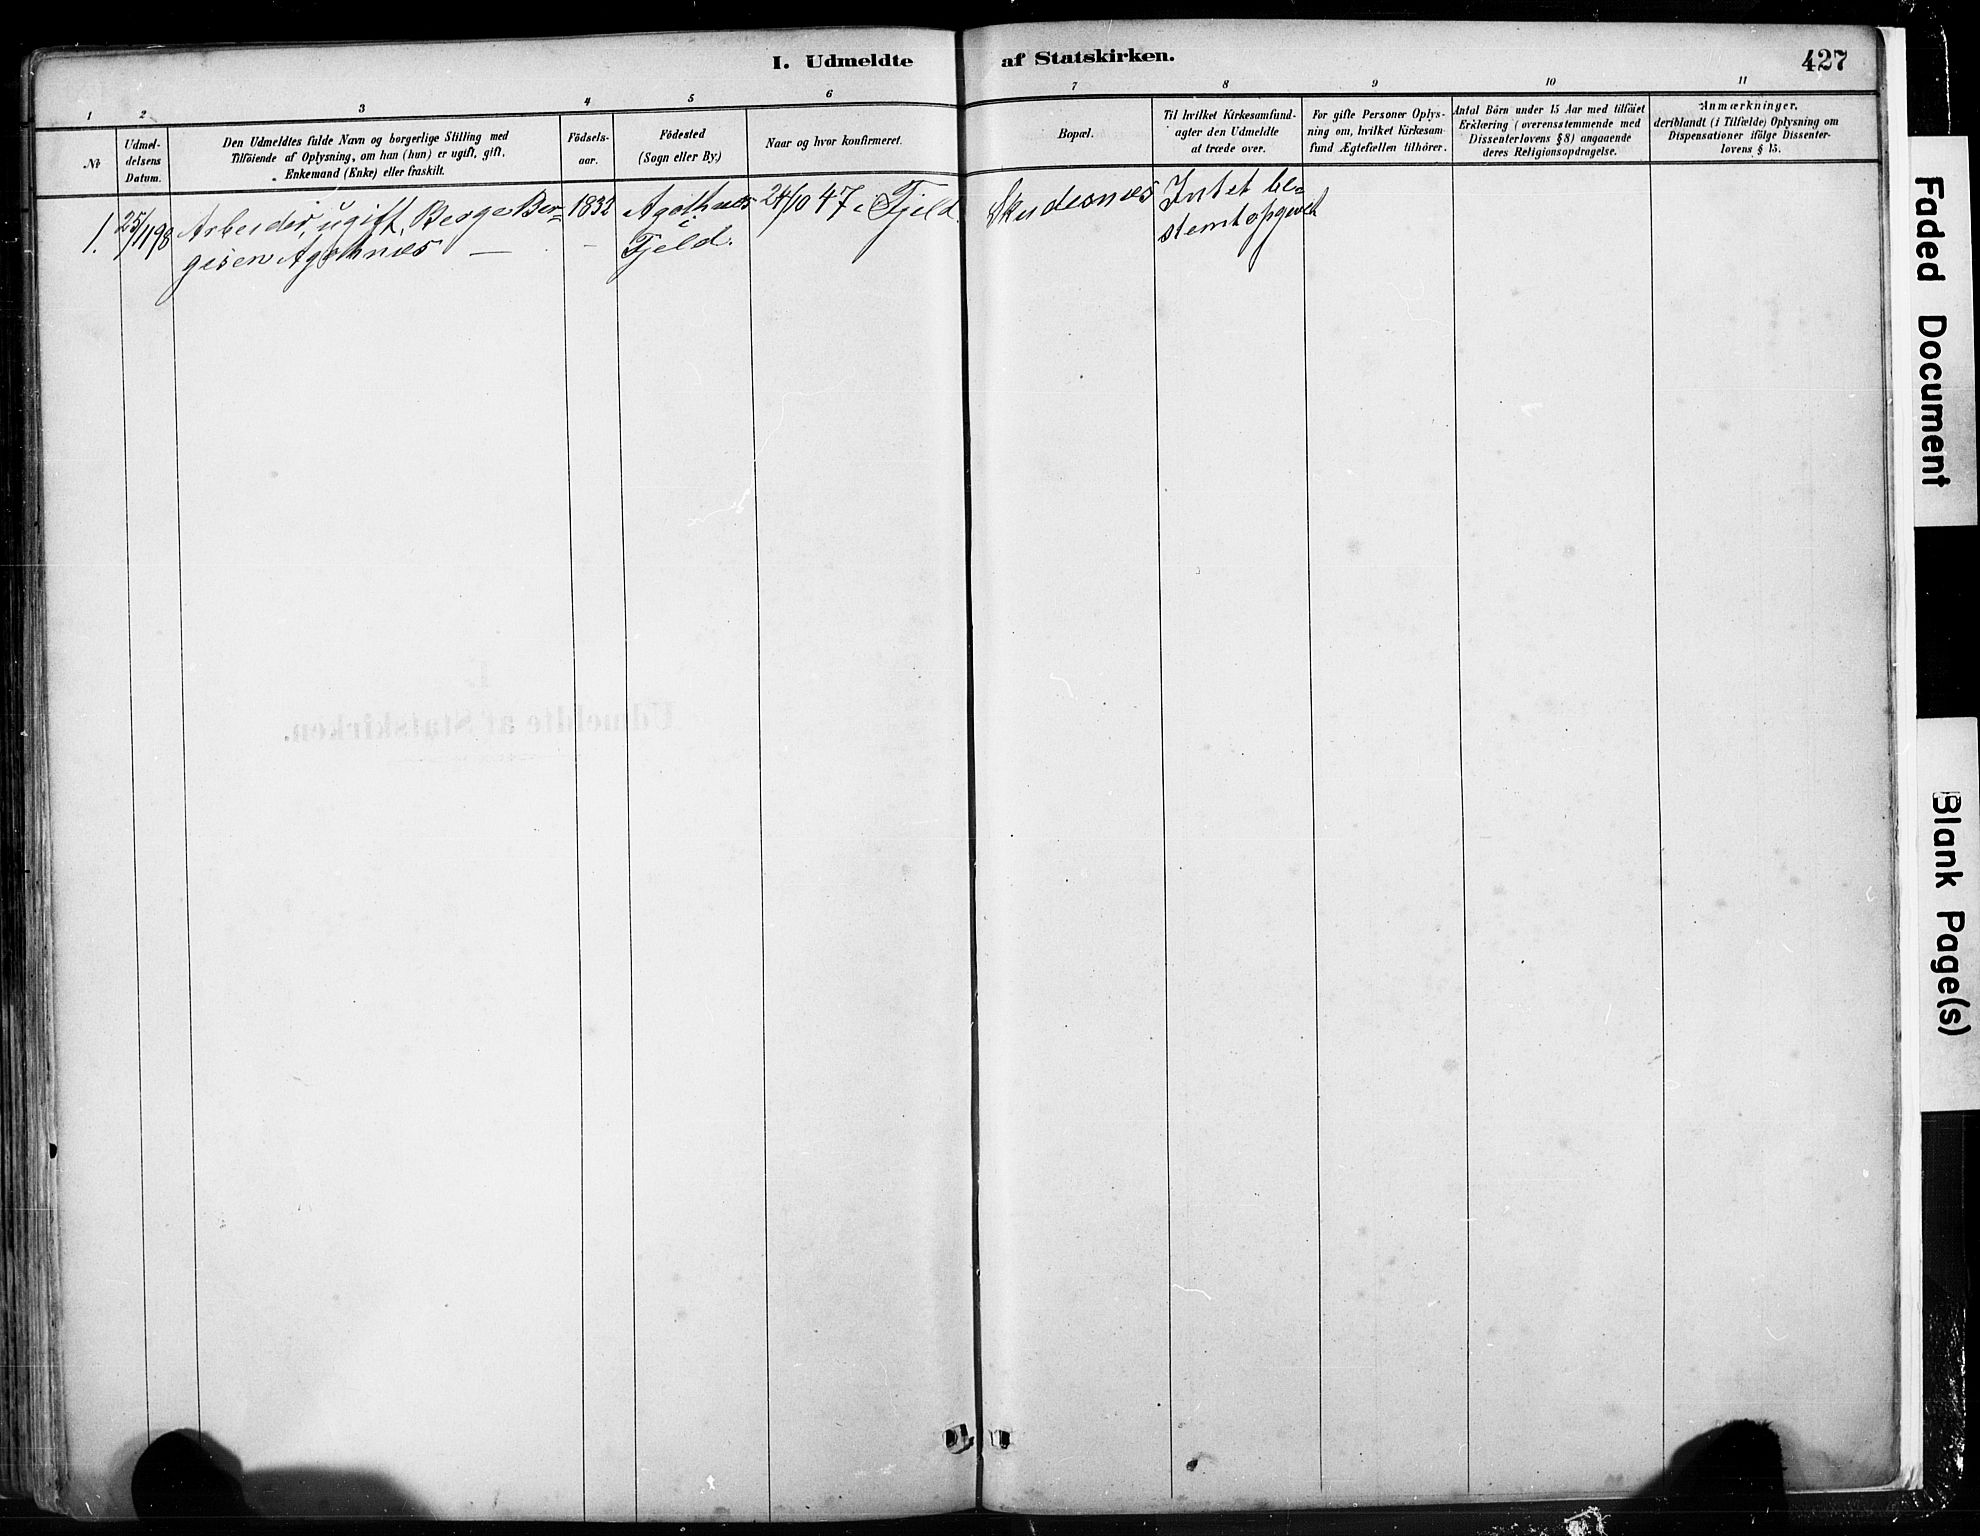 I. Udmeldte af Statskirken.
427
1 2 3 4 5 6 7 8 9 10 11
No
Udmel-
delsens
Datum.
Den Udmeldtes fulde Navn og borgerlige Stilling med
Tilföiende af Oplysning, om han (hun) er ugift, gift,
Enkemand (Enke) eller fraskilt.
Födsels-
aar.
Födested
(Sogn eller By)
Naar og hvor konfirmeret.
Bopæl.
Til hvilket Kirkesamfund-
agter den Udmeldte
at træde over.
For gifte Personer Oplys-
ning om, hvilket Kirkesam-
fund Ægtefællen tilhörer.
Antal Börn under 15 Aar med tilföiet
Erklæring (overensstemmende med
Dissenterlovens § 8) angaaende
deres Religionsopdragelse.
Anmærkninger,
deriblandt (i Tilfælde) Oplysning om
Dispensationer ifölge Dissenter-
lovens § 15.
1.
25/1198
Arbeider, ugift, Berge Ber-
gesen Agothnæs —
1832
—
Agothnæs
i
Fjeld.
24/10 47 i Fjeld.
Skudesnæs
Intet be-
stemt opgivet
Faded Document
Blank Page(s)
I.
Udmeldte af Statskirken.